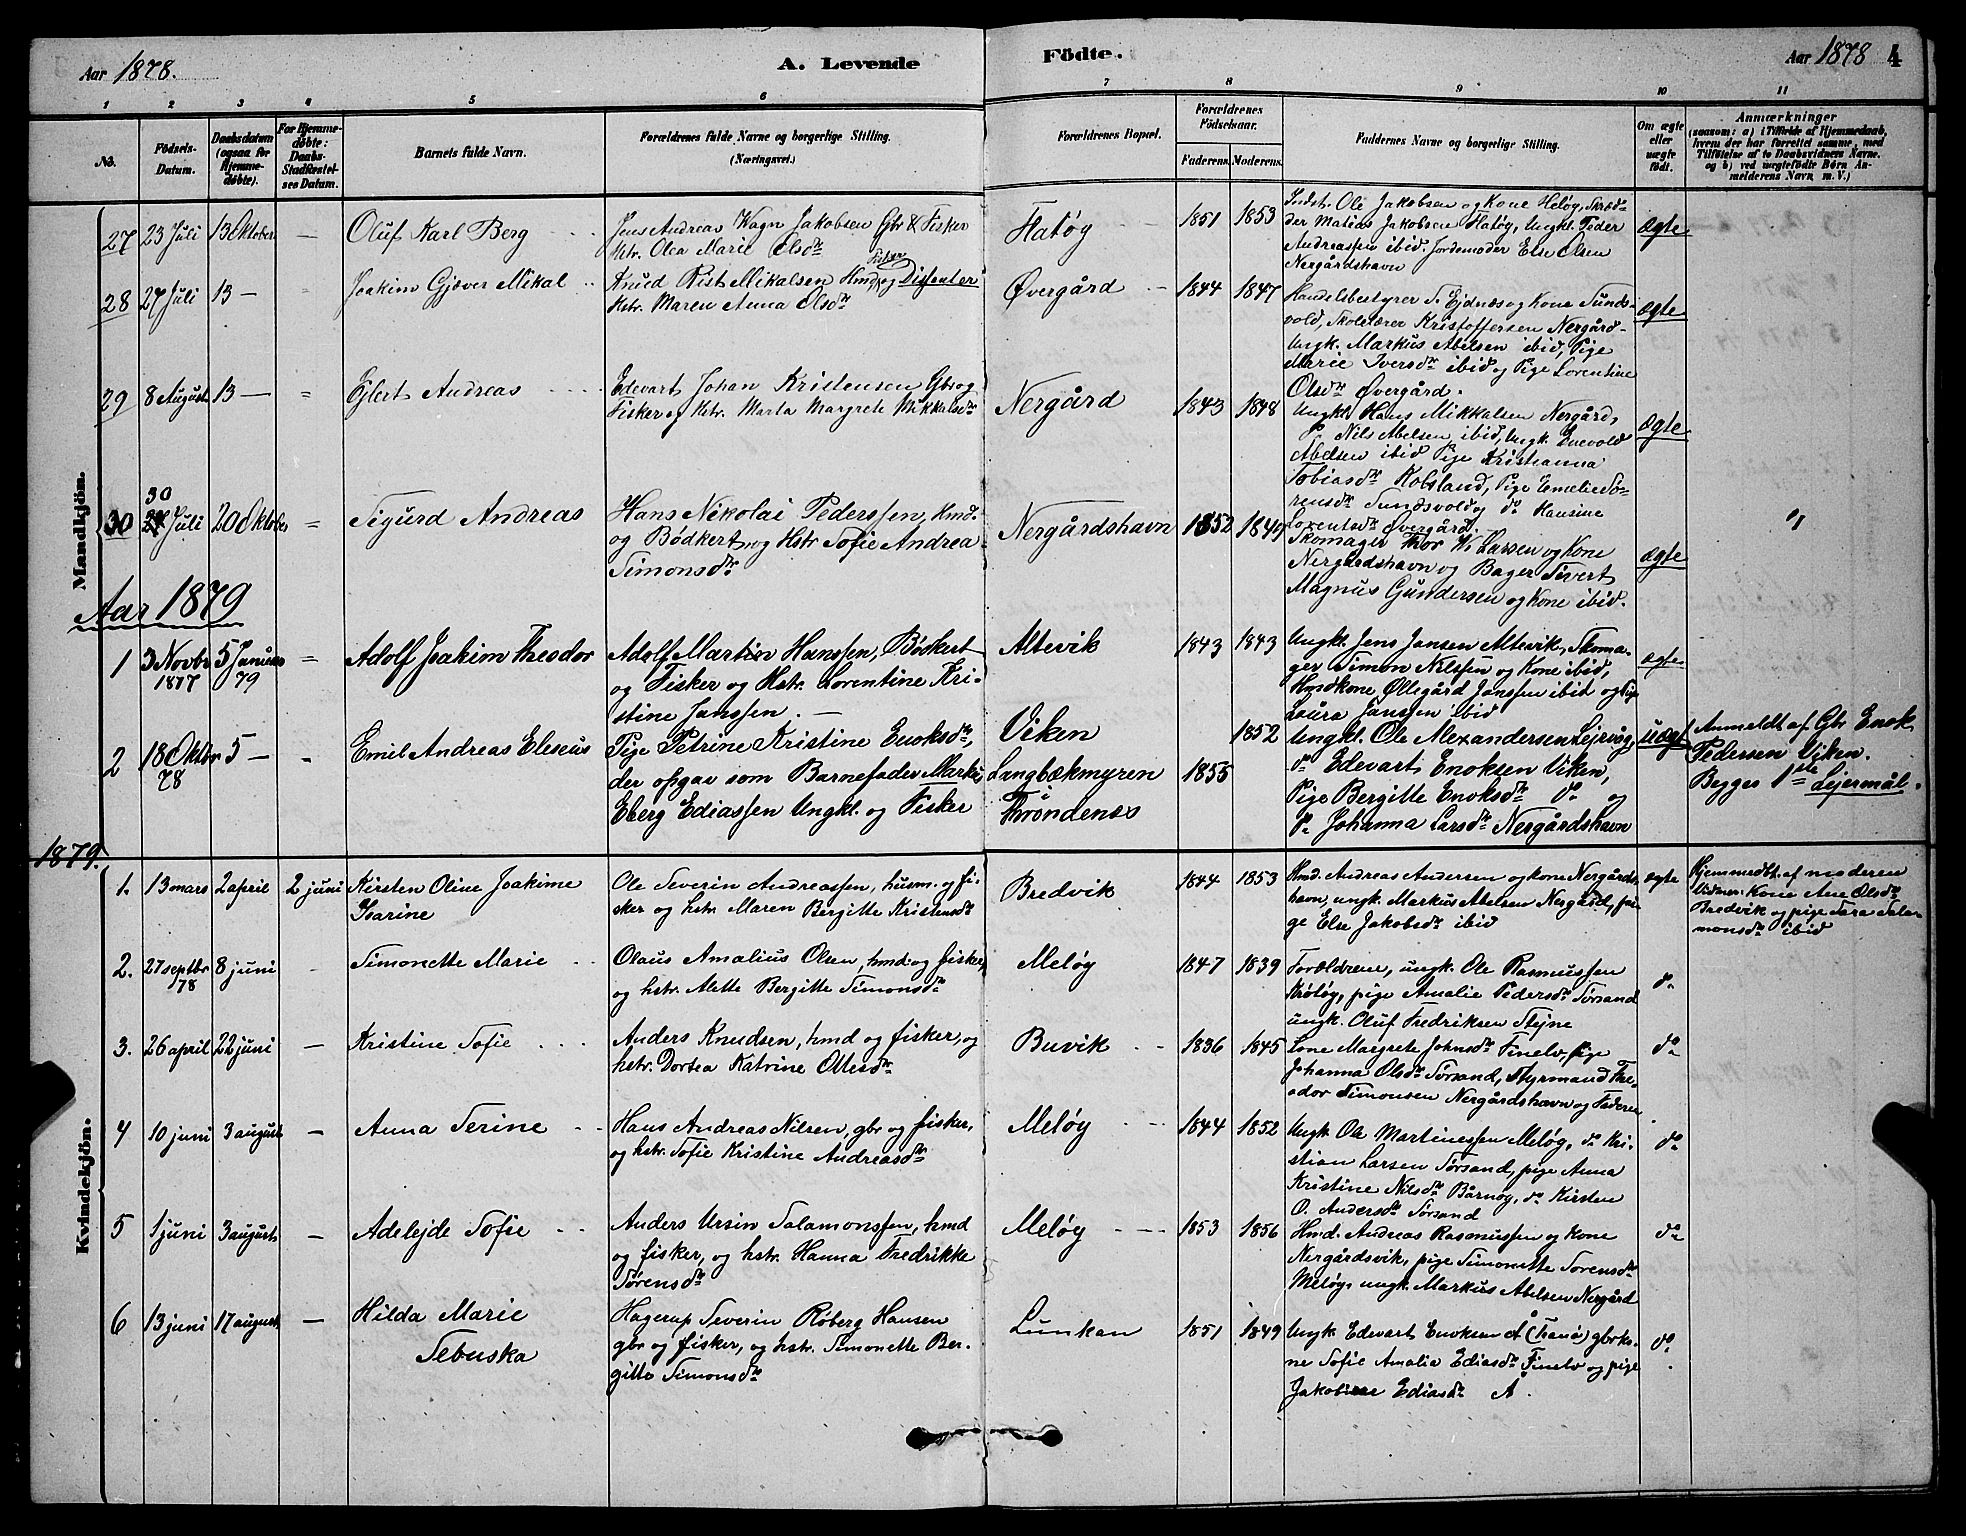 Aar 1878.
A. Levende
Födte.
Aar 1878
4
1 2 3 4 5 6 7 8 9 10 11
No.
Födsels-
Datum.
Daabsdatum
(ogsaa for
Hjemme-
døbte).
For Hjemme-
døbte:
Daabs-
Stadfæstel-
ses Datum.
Barnets fulde Navn.
Forældrenes fulde Navne og borgerlige Stilling.
(Næringsvei.)
Forældrenes Bopæl.
Forældrenes
Födselsaar.
Faderens. Moderens.
Faddernes Navne og borgerlige Stilling.
Om ægte
eller
uægte
født.
Anmærkninger
(saasom: a) i Tilfælde af Hjemmedaab,
hvem der har forrettet samme, med
Tilføielse af to Daabsvidners Navne.
og b) ved uægtefödte Börn An-
melderens Navn m. V.)
Mandkjön.
27 23 Juli 13 Oktober — Oluf Karl Berg
Jens Andreas Wagn Jakobsen Gbr & Fisker
Hstr. Olea Marie Olsdtr
Flatøy 1851 1853
Indst. Ole Jakobsen og Kone Meløy, Skræd-
der Matias Jakobsen Flatøy, Ungkl. Peder
Andreassen ibid. Jordemoder Else Olsen
Nergårdshavn
ægte
28 27 Juli 13 — Joakim Gjæver Mikal
Knud Rist Mikalsen Hmd og Fisker Dissenter
Hstr. Maren Anna Olsdtr
Øvergård 1844 1847
Handelsbestyrer S. Ejdnæs og Kone Sunds-
vold, Skolelærer Kristoffersen Nergård-
Ungk. Markus Abelsen ibid, Pige
Marie Iversdtr ibid og Pige Lorentine
Olsdtr Øvergård.
ægte
29 8 August 13 — = Ejlert Andreas
Edevart Johan Kristensen Gbr og
Fisker og Hstr. Marta Margrete Mikkalsdtr
Nergård 1843 1848
Ungkl. Hans Mikkalsen Nergård,
Do Nils Abelsen ibid, Ungk. Enevold
Abelsen ibid Pige Kristianna
Tobiasdtr Kobsland, Pige Emelie Sø-
rensdtr Sundsvold og do Hansine
Lorentsdtr Øvergård.
ægte
30 30 Juli 20 Oktober = Sigurd Andreas
Hans Nikolai Pederssen, Hmd.
og Bødkert, og Hstr Sofie Andrea
Simonsdtr
Nergårdshavn 1852 1849
Skomager Thor W. Larsen og Kone
Nergårdshavn og Bager Sivert
Magnus Gundersen og Kone ibid.
ægte
Aar 1879
1 3 Novbr 1877 5 Januar 79 = Adolf Joakim Theodor
Adolf Martin Hanssen, Bødkert
og Fisker og Hstr. Lorentine Kri-
stine Janssen. —
Altevik 1843 1843
Ungkl. Jens Jansen Altevik, Skoma-
ger Simon Nilssen og Kone ibid,
Hmdkone Øllegård Janssen ibid og Pige
Laura Janssen ibid
ægte
2 18 Oktbr 78 5 — " Emil Andreas Eleseus
Pige Petrine Kristine Enoksdtr,
der opgav som Barnefader Martin
Eberg Ediassen Ungkl. og Fisker
Viken
Langbækmyren
i
Throndenæs
1855 1852
Ungkl. Ole Alexandersen Lejrvåg,
do Edevart Enoksen Viken,
Pige Bergitte Enoksdtr do og
Do Johanna Larsdtr Nergårdshavn
uægt
Anmeldt af Gbr Enok
Pedersen Viken.
Begges 1ste Lejermål.
1879.
Kvindekjön.
1. 13 mars 2 april 2 juni Kirsten Oline Joakime
Isarine
Ole Severin Andreassen, husm. og fi-
sker og hstr. Maren Bergitte Kristensdtr
Bredvik 1844 1853
Hmd. Andreas Andersen og kone Nergårds-
havn, ungk. Markus Abelsen Nergård, pi-
ge Else Jakobsdtr ibid
ægte
Hjemmedbt. af moderen
Vidner: Kone Ane Olsdtr
Bredvik og pige Sara Sala-
monsdtr ibid
2. 27 septbr 78 8 juni Simonette Marie
Olaus Amalius Olsen, hmd og fisker,
og hstr. Alette Bergitte Simonsdtr
Meløy 1847 1839
Forældrene, ungk. Ole Rasmussen
Krøtøy, pige Amalie Pedersdtr Sørsand
ungk. Oluf Fredriksen Stejne
do
3. 26 april 22 juni — Kristine Sofie
Anders Knudsen, hmd og fisker, og
hstr. Dortea Katrine Ottesdtr
Buvik 1836 1845
Lone Margrete Johnsdtr Finelv, pige
Johanna Olsdtr Sørsand, Styrmand The-
odor Simonsen Nergårdshavn og Faderen
do
4 10 juni 3 august — Anna Serine
Hans Andreas Nilsen, gbr og fisker,
og hstr. Sofie Kristine Andreasdtr
Meløy 1844 1852
Ungk. Ole Martinessen Meløy, do Kri-
stian Larsen Sørsand, pige Anna
Kristine Nilsdtr Bårnøy, do Kirsten
O. Andersdtr Sørsand
do
5 1 juni 3 august — Adelejde Sofie
Anders Ursin Salamonssen, hmd
og fisker, og hstr. Hanna Fredrikke
Sørensdtr
Meløy 1853 1856
Hmd. Andreas Rasmussen og Kone
Nergårdsvik, pige Simonette Sørensdtr
Meløy, ungk. Markus Abelsen Nergård
do
6 13 juni 17 august — Hilda Marie
Sebuska
Hagerup Severin Røberg Hansen
gbr og fisker, og hstr. Simonette Ber-
gitte Simonsdtr
Lunkan 1851 1849
Ungk. Edevart Enoksen A (Tranø) gbrko-
ne Sofie Amalia Ediasdtr Finelv og pige
Jakobine Ediasdtr A.
do